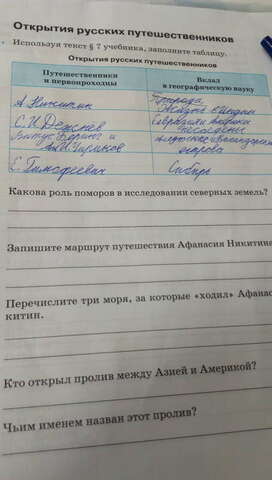 Открытия русских путешественников
Используя текст § 7 учебника, заполните таблицу.
Открытия русских путешественников
Путешественники
и первопроходцы
Вклад
в географическую науку
А. Никитин
Природа
Индии
С. И. Дежнев
Евразии Америки
Витус Беринг и
острова
Е. Тимофеевич
Сибирь
Какова роль поморов в исследовании северных земель?
Запишите маршрут путешествия Афанасия Никитина
Перечислите три моря, за которые «ходил» Афана
китин.
Кто открыл пролив между Азией и Америкой?
Чьим именем назван этот пролив?